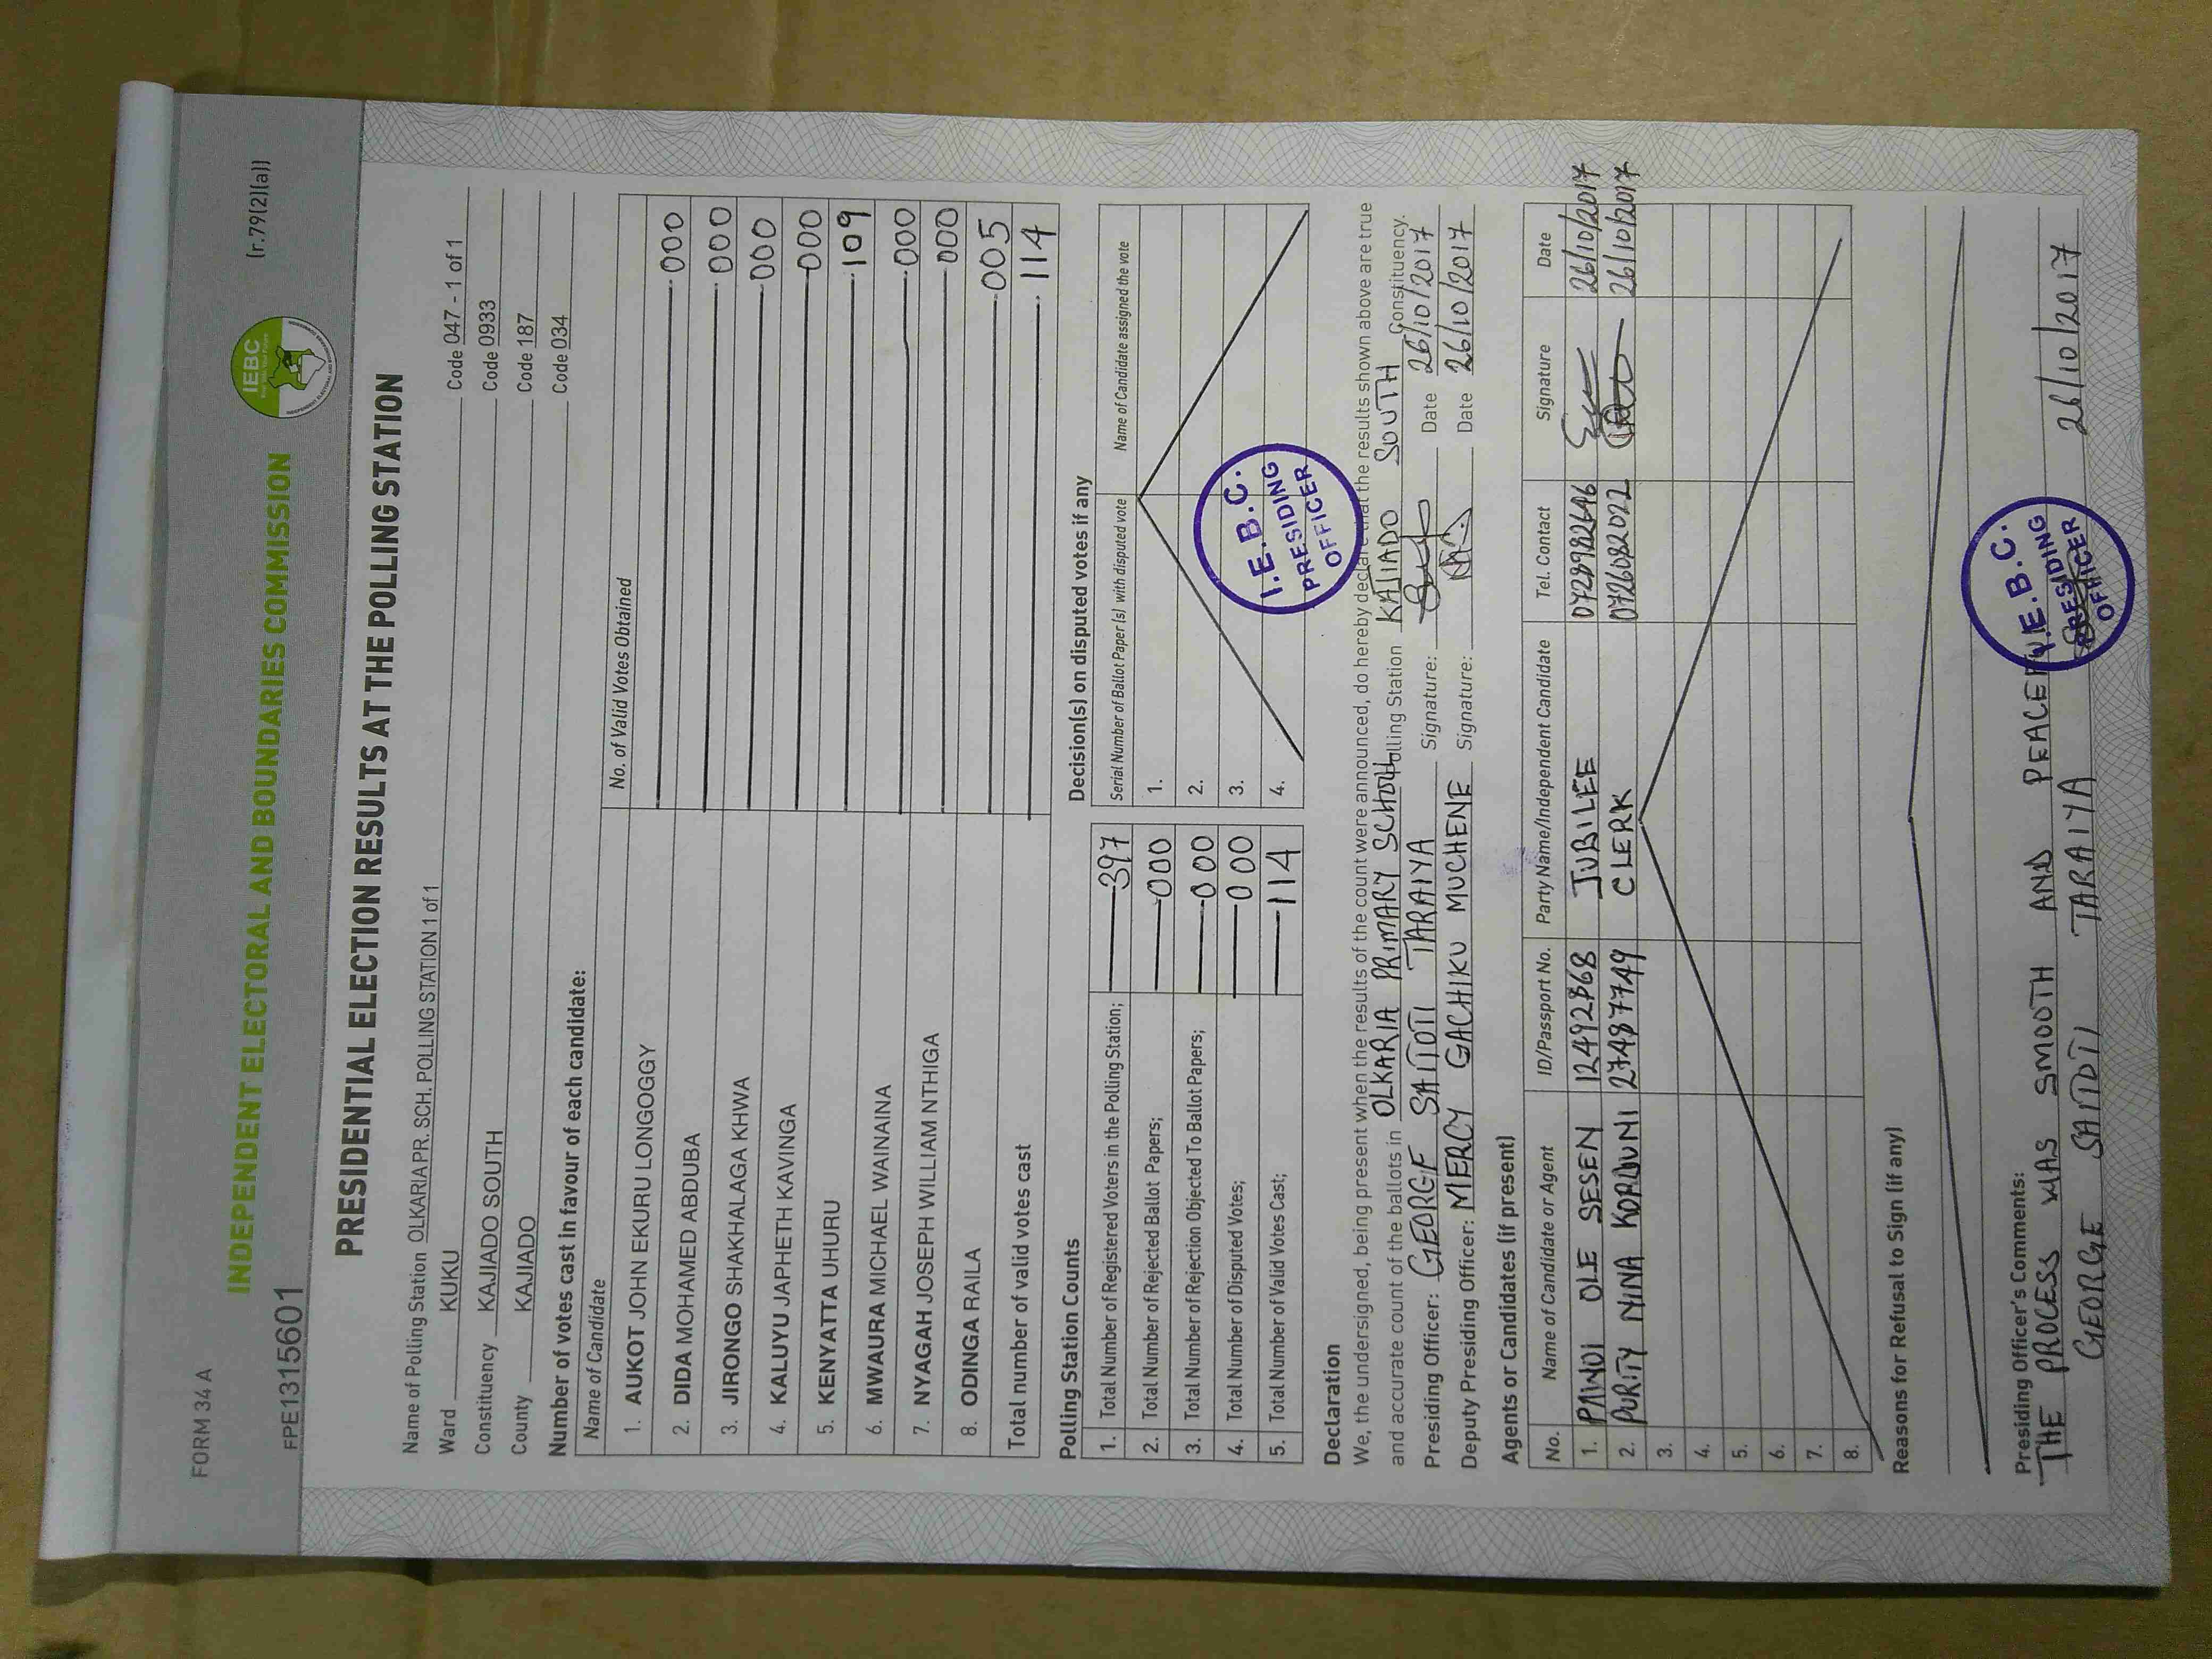 FORM 34 A
(r.79(2)(a))
FPE1315601
INDEPENDENT ELECTORAL AND BOUNDARIES COMMISSION
IEBC
PRESIDENTIAL ELECTION RESULTS AT THE POLLING STATION
Name of Polling Station OLKARIA PR. SCH. POLLING STATION 1 of 1
Ward KUKU Code 047 - 1 of 1
Constituency KAJIADO SOUTH Code 0933
County KAJIADO Code 187
Code 034
Number of votes cast in favour of each candidate:
Name of Candidate No. of Valid Votes Obtained
1. AUKOT JOHN EKURU LONGOGGY 000
2. DIDA MOHAMED ABDUBA 000
3. JIRONGO SHAKHALAGA KHWA 000
4. KALUYU JAPHETH KAVINGA 000
5. KENYATTA UHURU 109
6. MWAURA MICHAEL WAINAINA 000
7. NYAGAH JOSEPH WILLIAM NTHIGA 000
8. ODINGA RAILA 005
Total number of valid votes cast 114
Polling Station Counts
1. Total Number of Registered Voters in the Polling Station; 397
2. Total Number of Rejected Ballot Papers; 000
3. Total Number of Rejection Objected To Ballot Papers; 000
4. Total Number of Disputed Votes; 000
5. Total Number of Valid Votes Cast; 114
Decision(s) on disputed votes if any
Serial Number of Ballot Paper (s) with disputed vote Name of Candidate assigned the vote
1.
2.
3.
4.
I.E.B.C.
PRESIDING
OFFICER
Declaration
We, the undersigned, being present when the results of the count were announced, do hereby declare that the results shown above are true
and accurate count of the ballots in OLKARIA PRIMARY SCHOOL Polling Station KAJIADO SOUTH Constituency.
Presiding Officer: GEORGE SAITOTI TARAIYA Signature: Date 26/10/2017
Deputy Presiding Officer: MERCY GACHIKU MUCHENE Signature: Date 26/10/2017
Agents or Candidates (if present)
No. Name of Candidate or Agent ID/Passport No. Party Name/Independent Candidate Tel. Contact Signature Date
1. OLE SESEN JUBILEE 26/10/2017
2. PURITY NINA 27487749 CLERK 0726082022 26/10/2017
3.
4.
5.
6.
7.
8.
Reasons for Refusal to Sign (if any)
Presiding Officer's Comments:
THE PROCESS WAS SMOOTH AND
GEORGE SAITOTI TARAIYA 26/10/2017
I.E.B.C.
PRESIDING
OFFICER